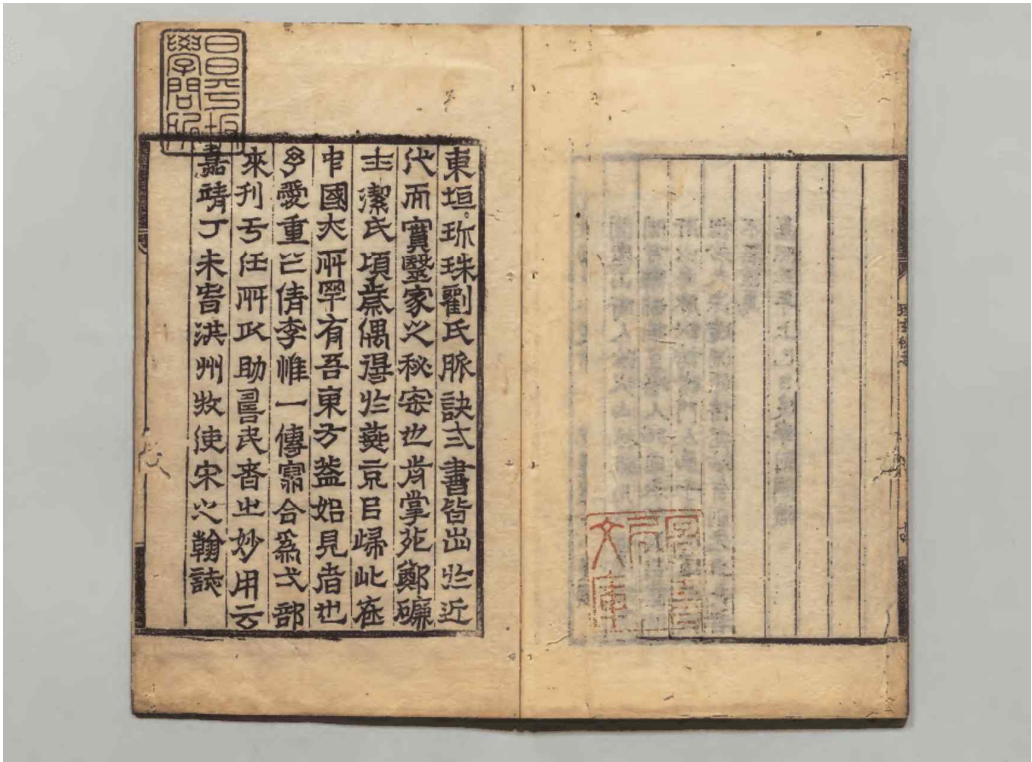 昌平坂
學問所
東垣珎珠劉氏脉訣弍書皆出於近
代而實毉家之秘宻也歬掌苑鄭𥖝
士潔氏頃歲偶得於燕京㠯歸此在
中國亦所罕有吾東方盖始見者也
予愛重之倩李惟一傳寫合爲弌部
來刊于任所以助壽民者之妙用云
嘉靖丁未旾洪州牧使宋之翰誌
文庫